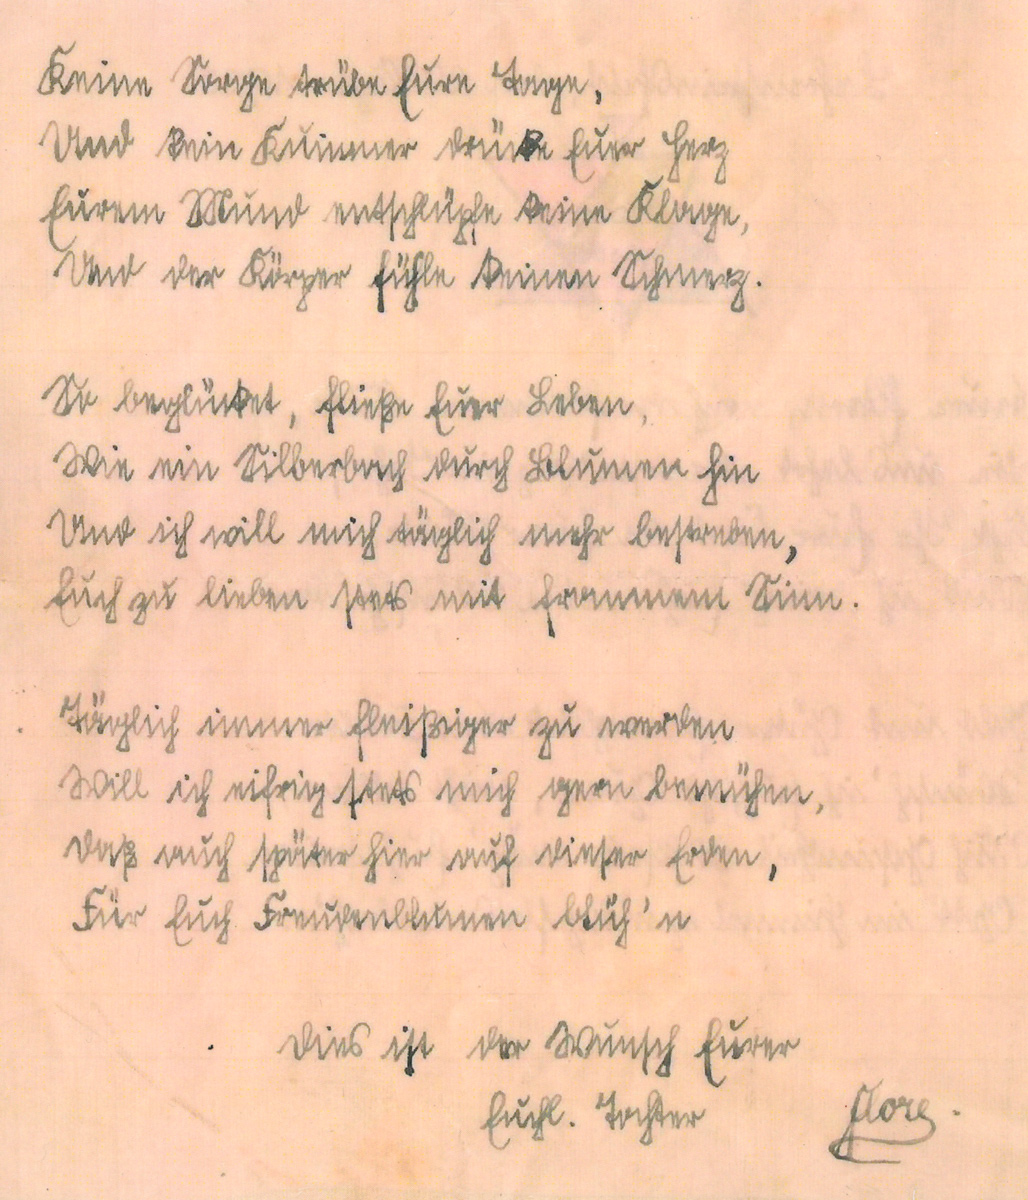 Keine Sorge trübe Eure Tage,
Und kein Kummer drücke Euer Herz
Eurem Mund entschlüpfe keine Klage,
Und der Körper fühle keinen Schmerz.
So beglücket, fließe Euer Leben,
Wie ein Silberbach durch Blumen hin
Und ich will mich täglich mehr bestreben,
Euch zu lieben stets mit frommem Sinn.
Täglich immer fleißiger zu werden
Will ich eifrig stets mich gern bemühen,
daß auch später hier auf dieser Erden,
Für Euch Freudenblumen blüh'n
Dies ist der Wunsch Eurer
Euchl. Tochter Flore.